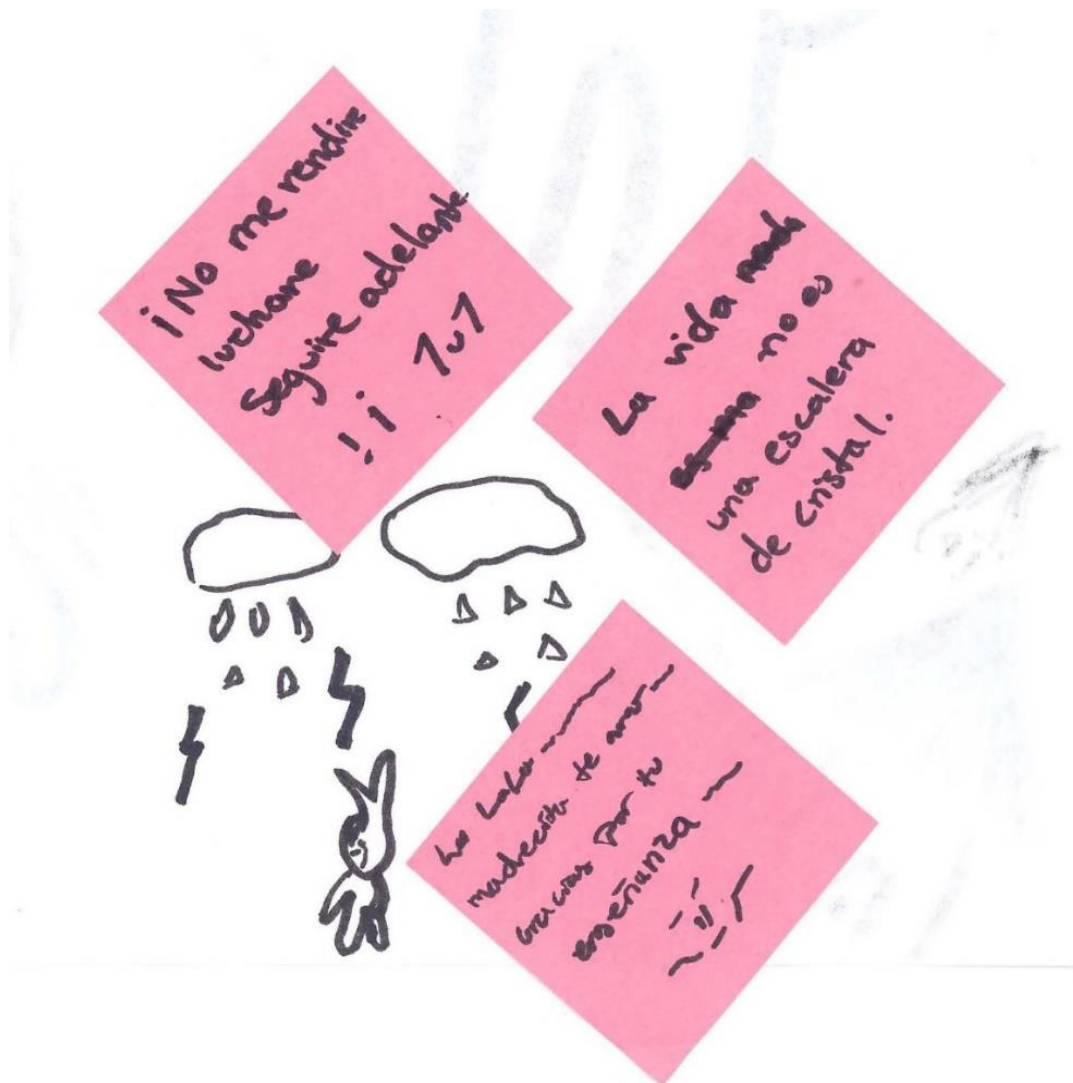 ¡No me rendire
luchare
seguire adelante
!¡ 1u1
La vida
no es
una escalera
de cristal.
La LaLa
madrecita te amo
Gracias por tu
enseñanza